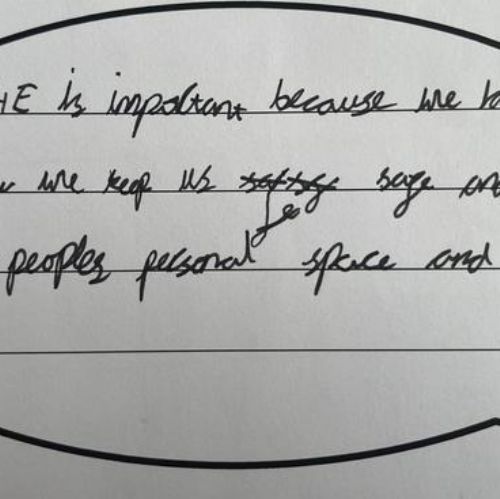 HE is important because we
we keep us safe and
peoples personal space and